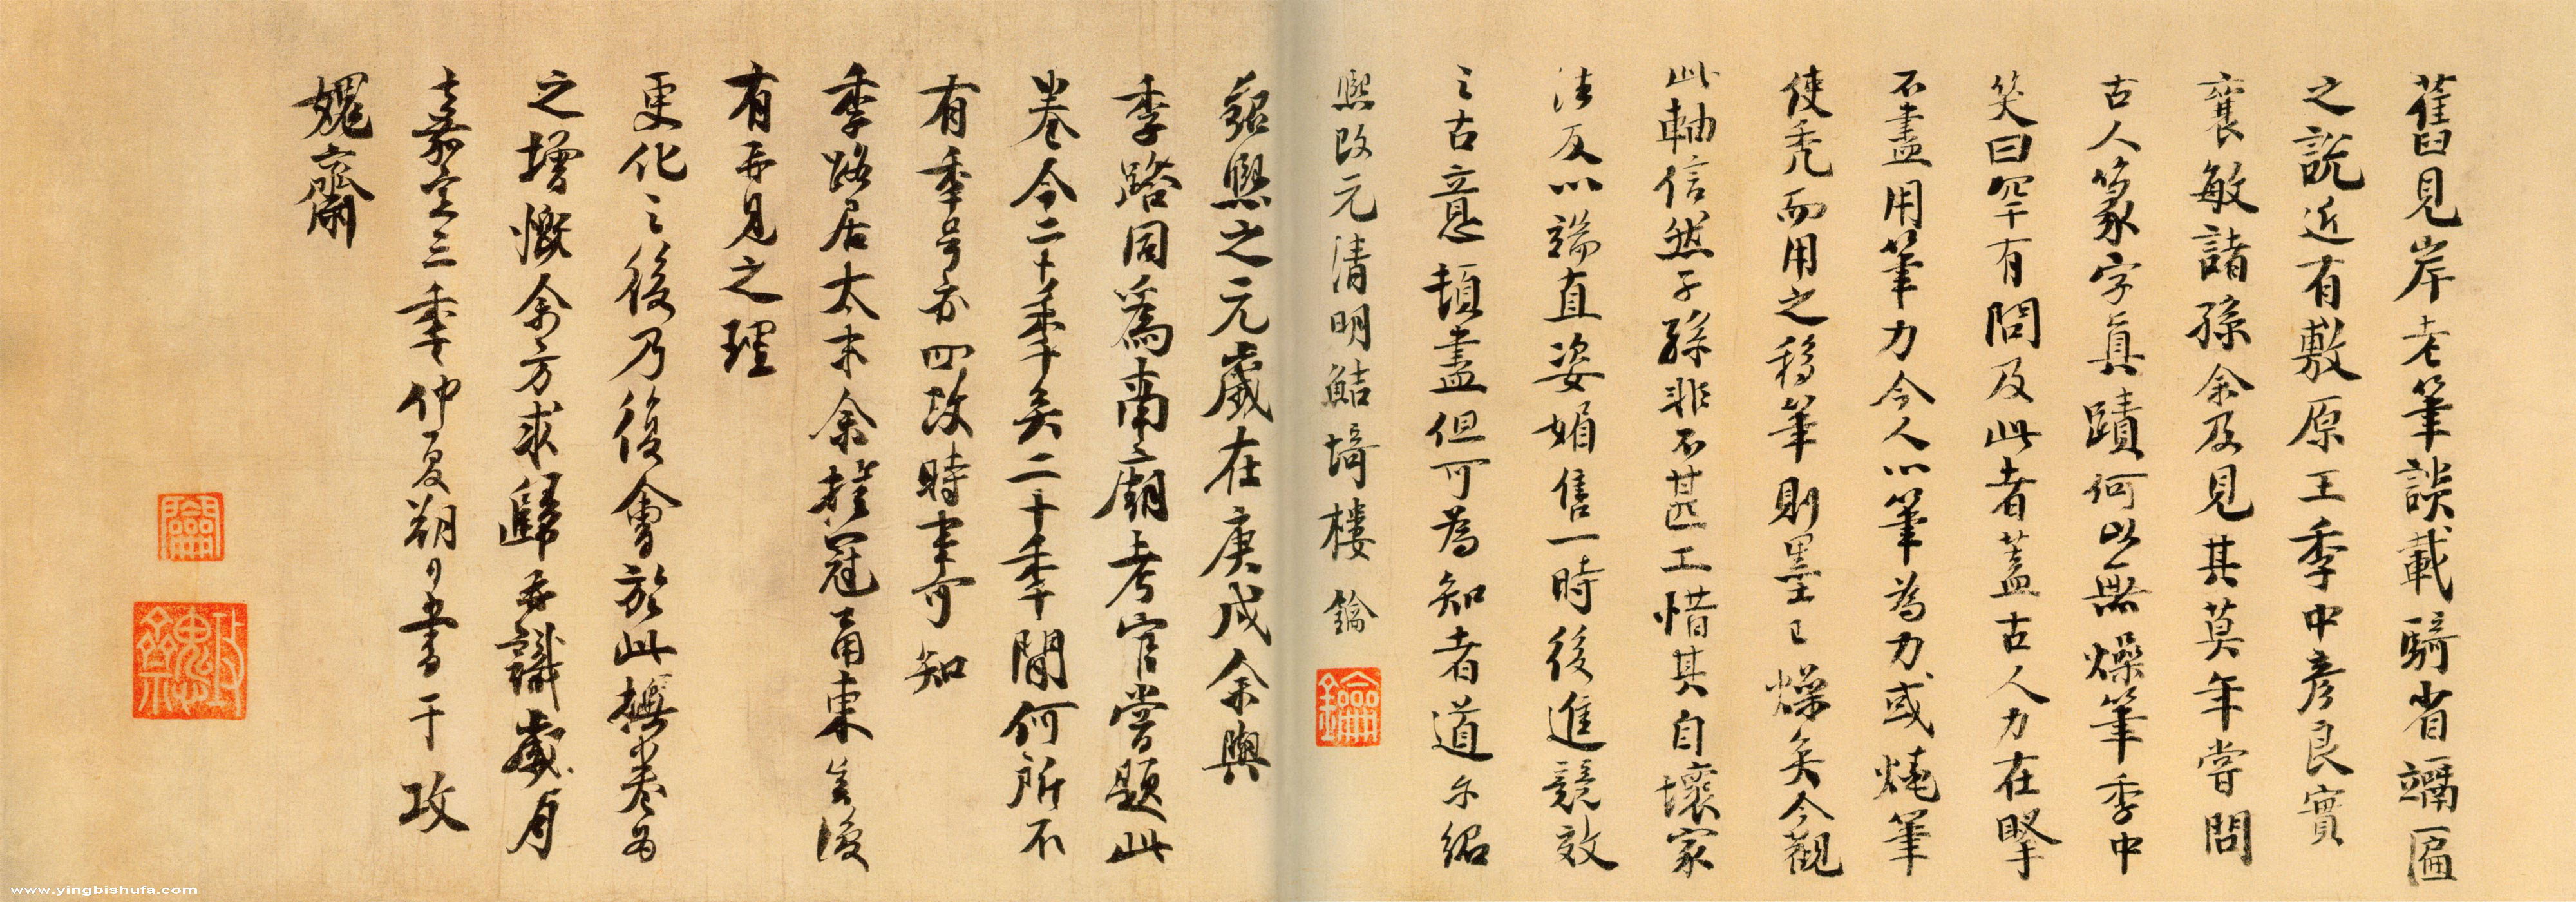 舊見岸老筆談載騎省𥿄匾
之說近有敷原王季中彥良實
襄敏諸孫余及見其莫年嘗問
古人篆字真蹟何以無燥筆季中
笑曰罕有問及此者蓋古人力在堅
不盡用筆力今人以筆為力或燒筆
使禿而用之移筆則墨已燥矣今觀
此軸信然子孫非不甚工惜其自壞家
法反以端直姿媚售一時後進競效
之古意頓盡但可為知者道尔紹
熙改元清明鮚埼樓鑰
紹熙之元歲在庚戌余與
季路同為南廟考官嘗題此
卷今二十季矣二十季間何所不
有季号亦四改時事可知
季路居太末余挂冠甬東矣復
有再見之理
更化之後乃復會於此撫卷為
之增慨余方求歸再識歲月
嘉定三季仲夏朔日書于攻
媿齋
鑰
攻媿齋
www.yingbishufa.com